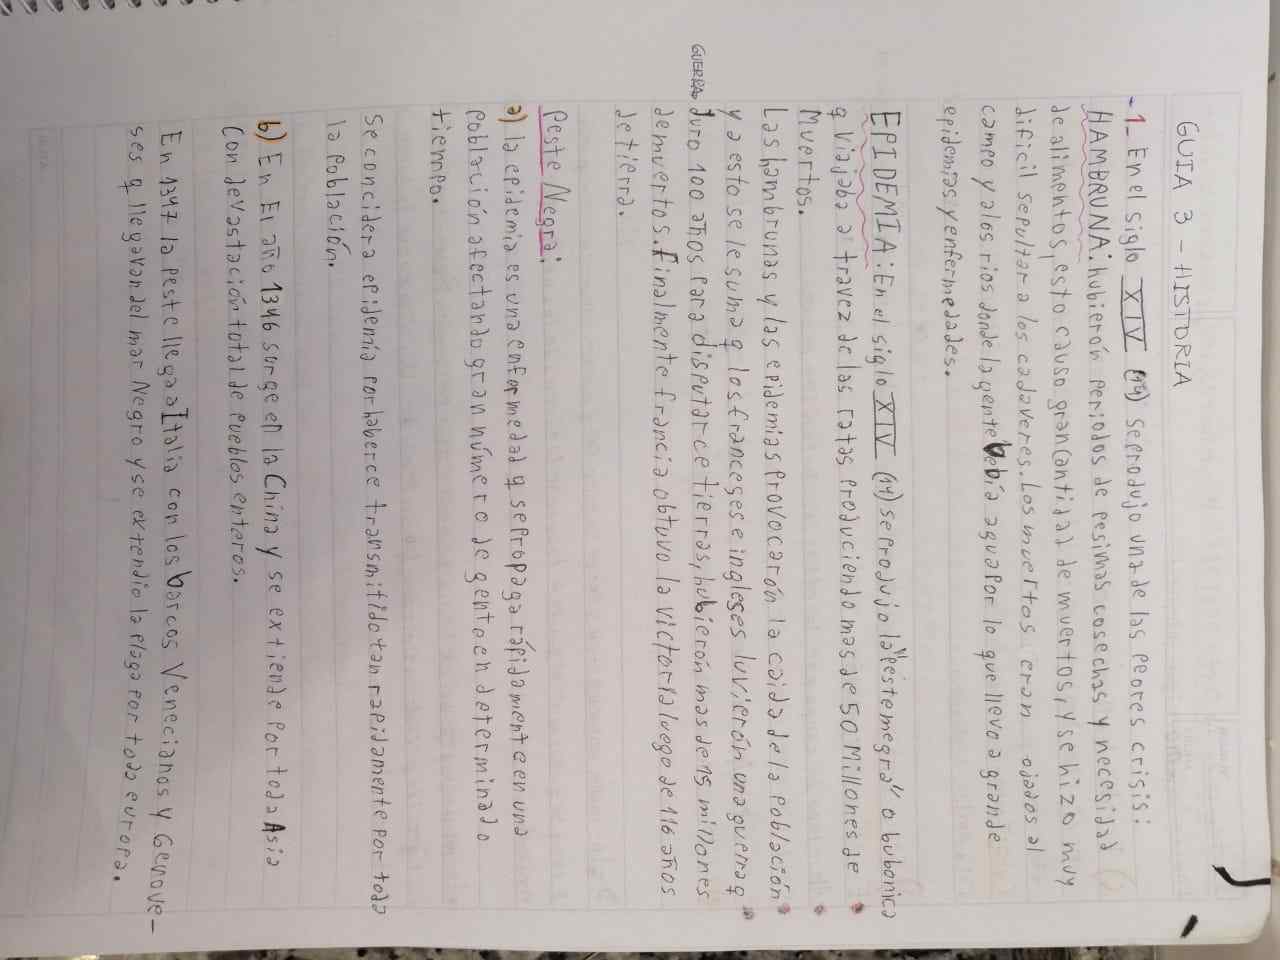 GUIA 3 - HISTORIA
-1_ En el siglo XIV (14) se produjo una de las peores crisis:
HAMBRUNA: hubierón periodos de pesimas cosechas y necesidad
de alimentos, esto causo gran cantidad de muertos, y se hizo muy
dificil sepultar a los cadaveres. Los muertos eran ojados al
campo y a los rios donde la gente bebía agua por lo que llevo a grande
epidemias y enfermedades.
EPIDEMIA: En el siglo XIV (14) se produjo la "peste negra" o bubonica
q viajaba a travez de las ratas produciendo mas de 50 Millones de
Muertos.
Las hambrunas y las epidemias provocarón la caida de la población
y a esto se le suma q los franceges e ingleges tuvierón una guerra q
GUERRA duro 100 años para disputarce tierras, hubierón mas de 15 millones
de muertos. finalmente francia obtuvo la victoria luego de 116 años
de tierra.
Peste Negra:
a) la epidemia es una enfermedad q se propaga rápidamente en una
población afectando gran número de gente en determinado
tiempo.
Se concidera epidemia por haberce transmitido tan rapidamente por toda
la población.
b) En El año 1346 surge en la China y se extiende por toda Asia
Con devastación total de pueblos enteros.
En 1347 la peste llega a Italia con los barcos Venecianos y Genove-
ses q llegavan del mar Negro y se extendio la plaga por toda europa.